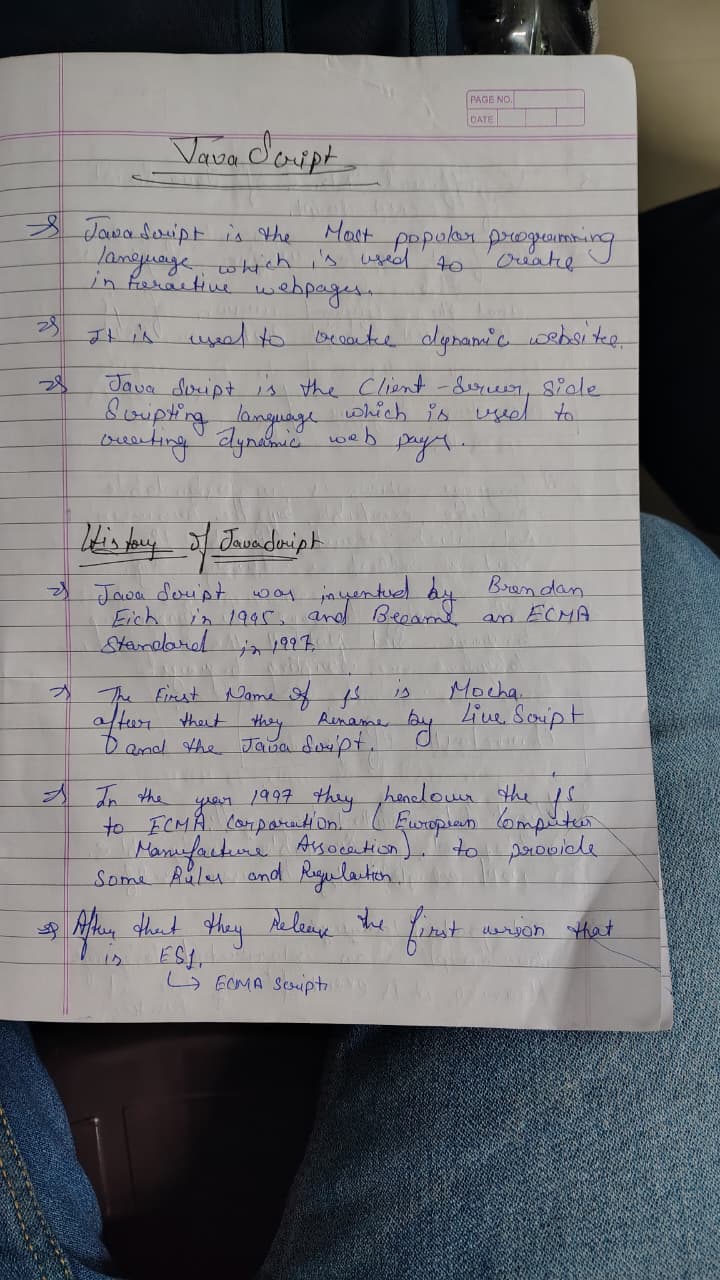 PAGE NO.
DATE
JavaScript
=> JavaScript is the Most popular programming
language which is used to create
interactive webpages.
=> It is used to create dynamic website.
=> Java Script is the Client-Server side
Scripting language which is used to
creating dynamic web pages.
History of JavaScript
=> Java Script was invented by Brendan
Eich in 1995, and Became an ECMA
Standard in 1997.
=> The First Name of js is Mocha.
after that they Rename by Live Script
and the Java Script.
=> In the year 1997 they handover the js
to ECMA Corporation. (European Computer
Manufacture Assocation). to provide
Some Rules and Regulation.
=> After that they Release the first version that
is ES1.
↳ ECMA Script